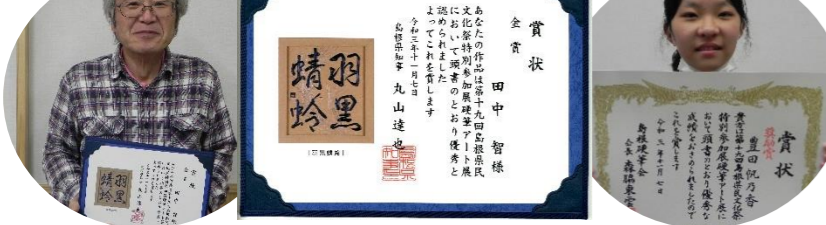 賞状
金賞
田中 智様
あなたの作品は第十九回島根県民
文化祭特別参加展硬筆アート展
において頭書のとおり優秀と
認められました
よってこれを賞します
令和三年十一月七日
島根県知事 丸山達也
羽黒
蜻蛉
賞状
奨励賞
豊田帆乃香
貴方は第十九回島根県民文化祭
特別参加展硬筆アート展に
おいて頭書のとおり優秀な
成績をおさめられましたので
これを賞します
令和三年十一月七日
島根硬筆会
会長 森脇東雲